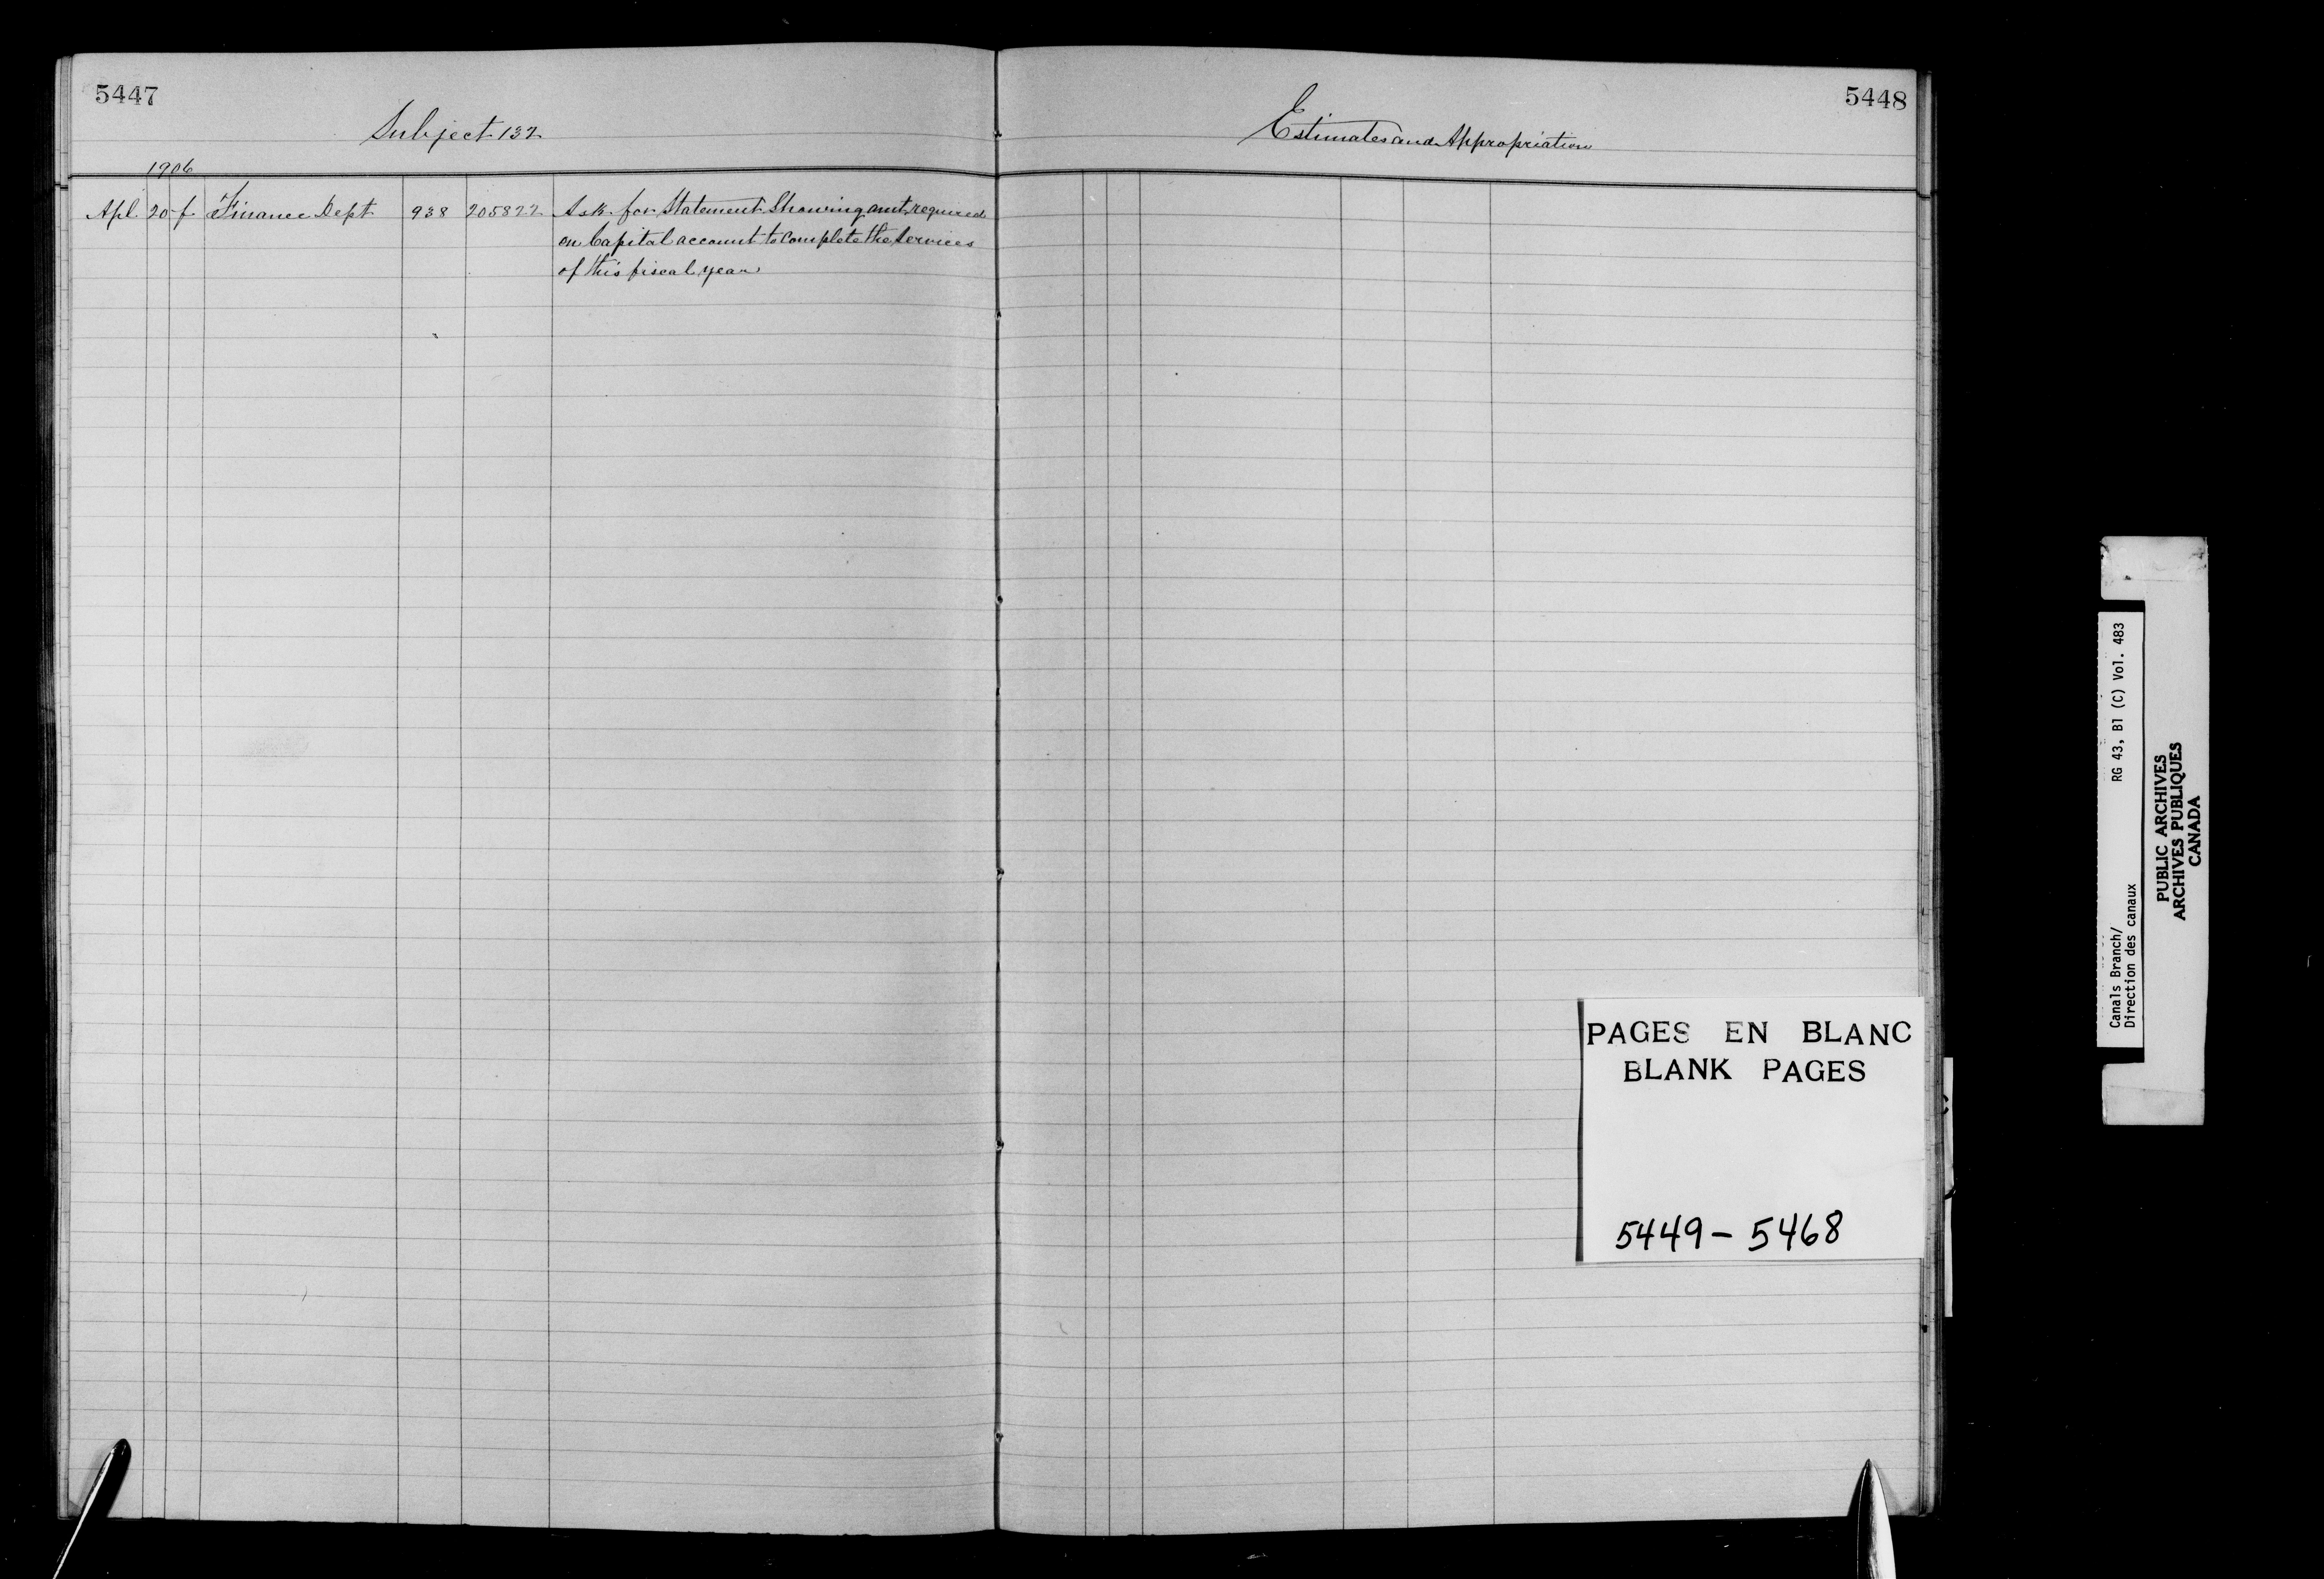 5447
Subject 132
1906
Apl. 20 f Finance Dept 938 205822 Ask for Statement Showing amt required
on Capital account to complete the Services
of this fiscal year
5448
Estimates and Appropriation
PAGES EN BLANC
BLANK PAGES
5449 - 5468
Canals Branch/ RG 43, B1 (C) Vol. 483
Direction des canaux
PUBLIC ARCHIVES
ARCHIVES PUBLIQUES
CANADA